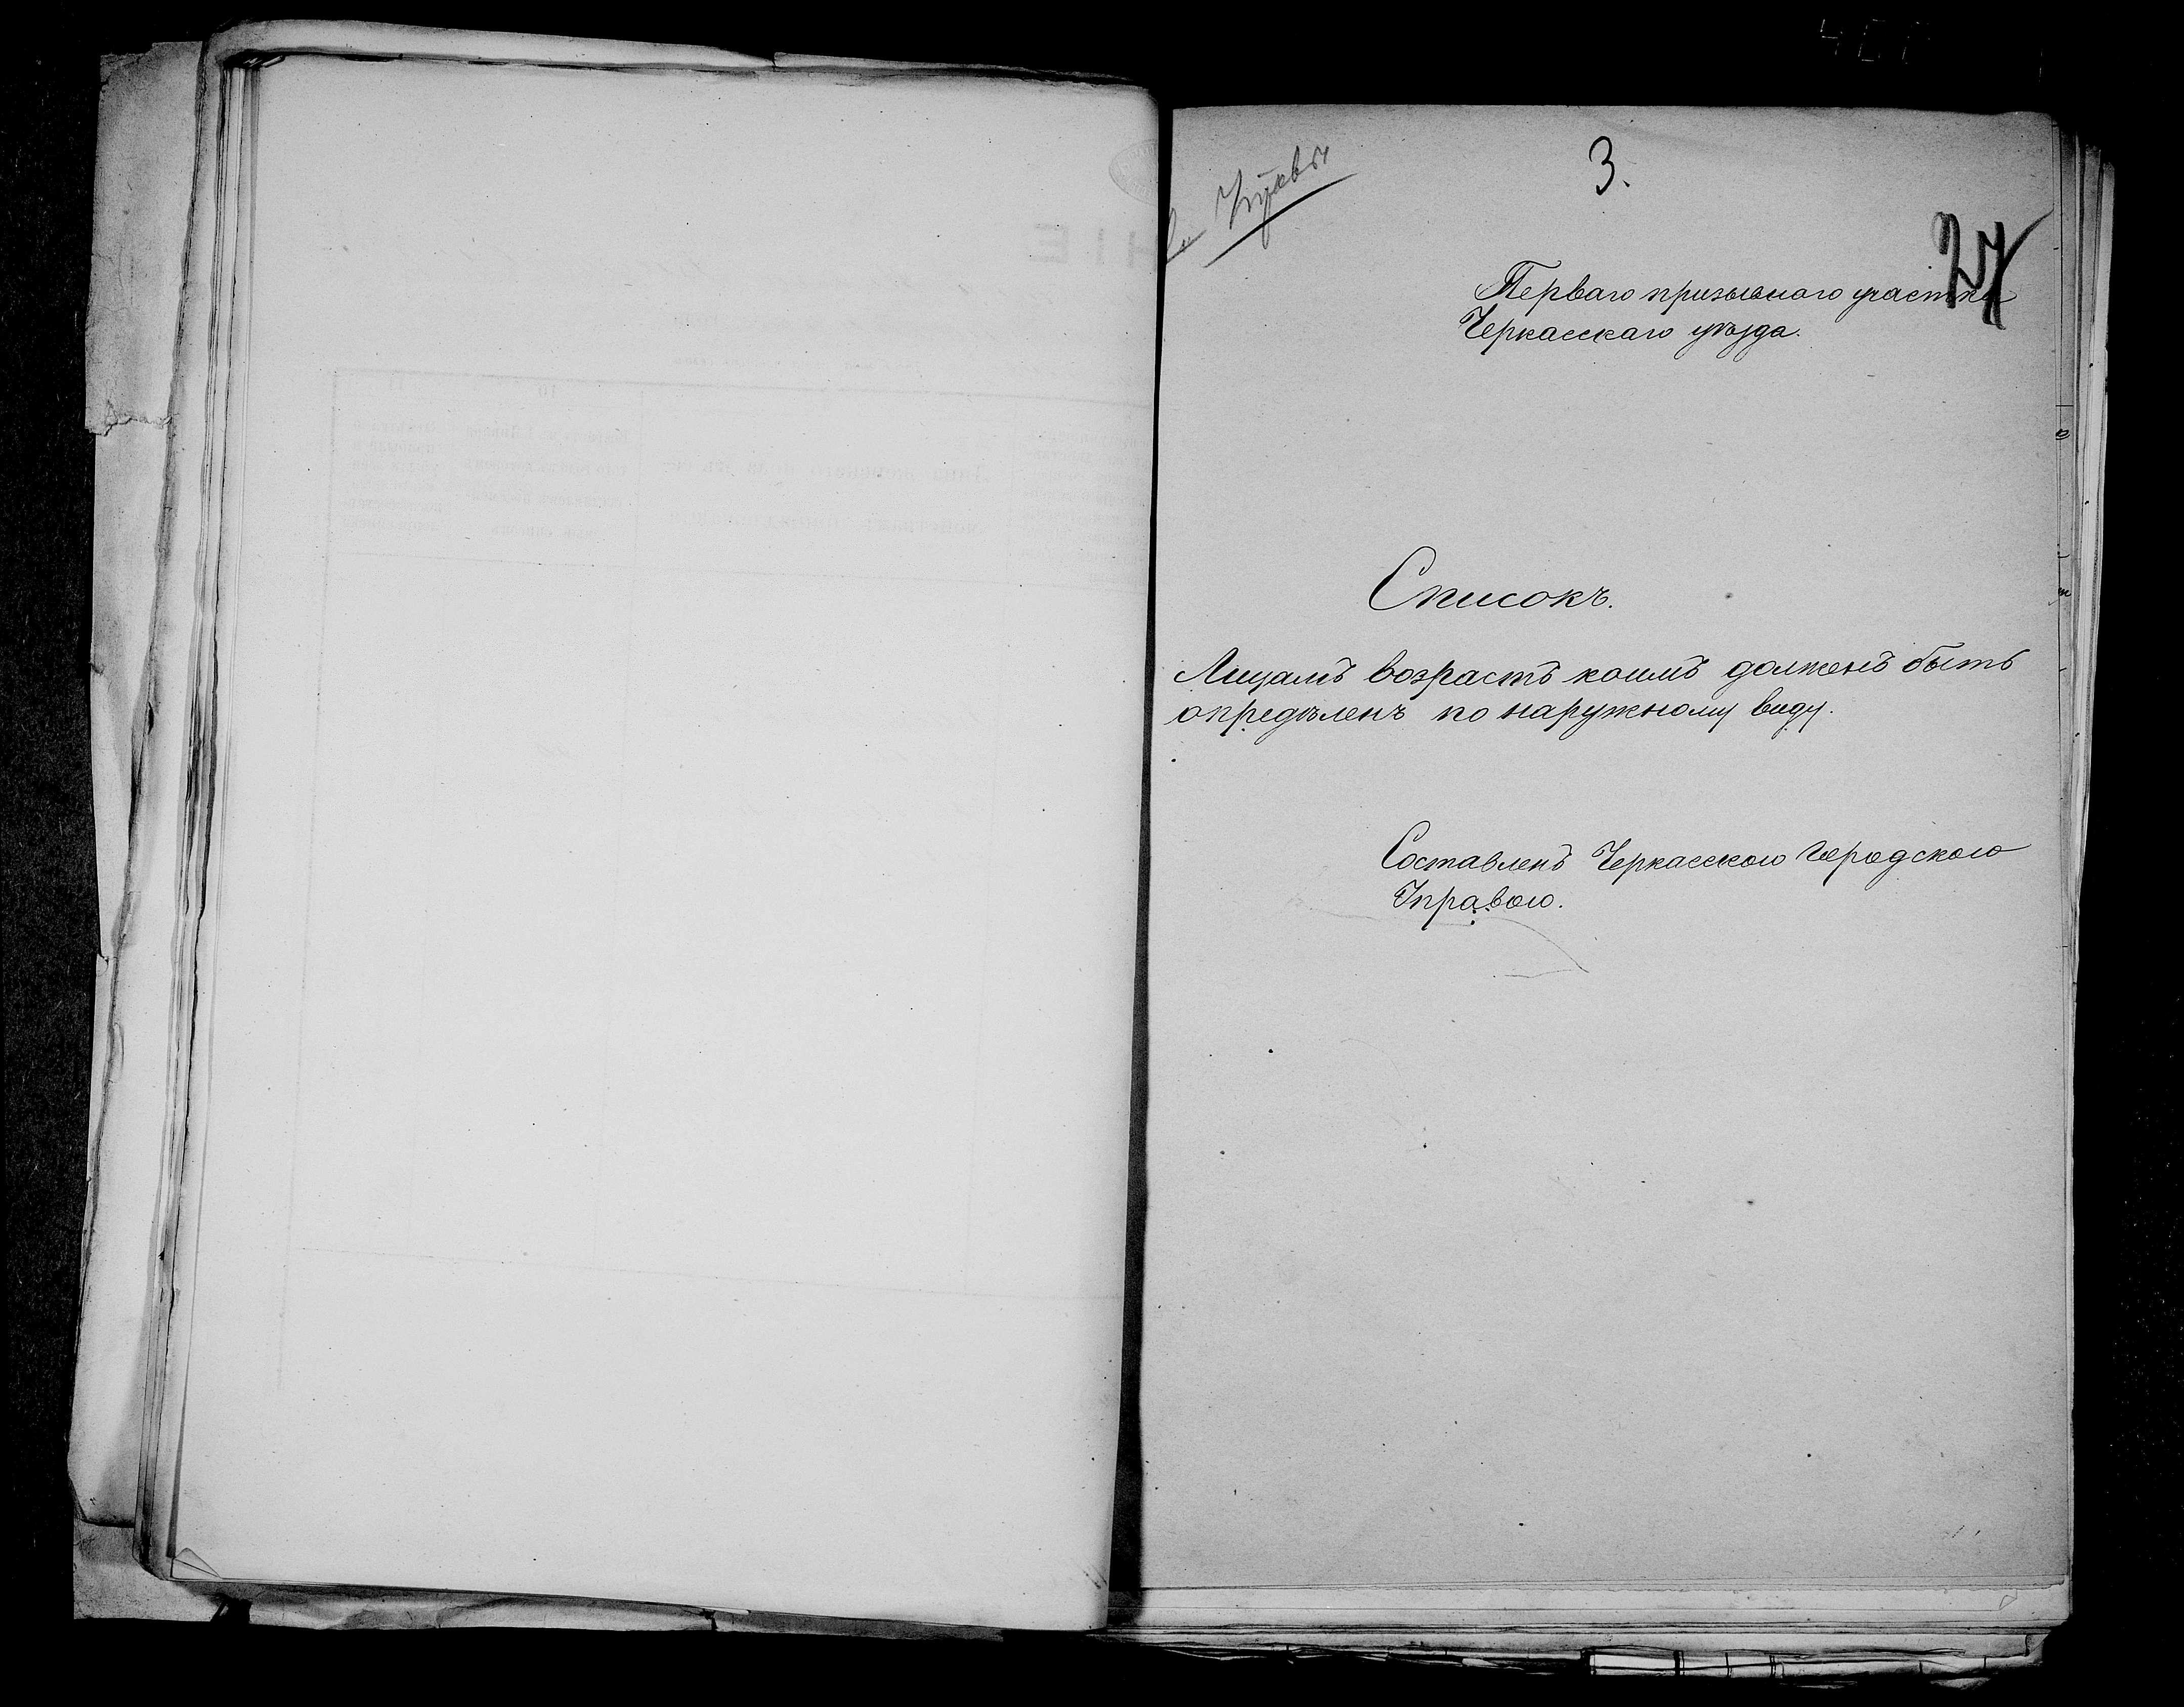 3.
27
Перваго призывного участка
Черкасскаго уѣзда.
Списокъ.
Лицамъ возрастъ коимъ долженъ быть
опредѣленъ по наружному виду.
Составленъ Черкасскою Городскою
Управою.